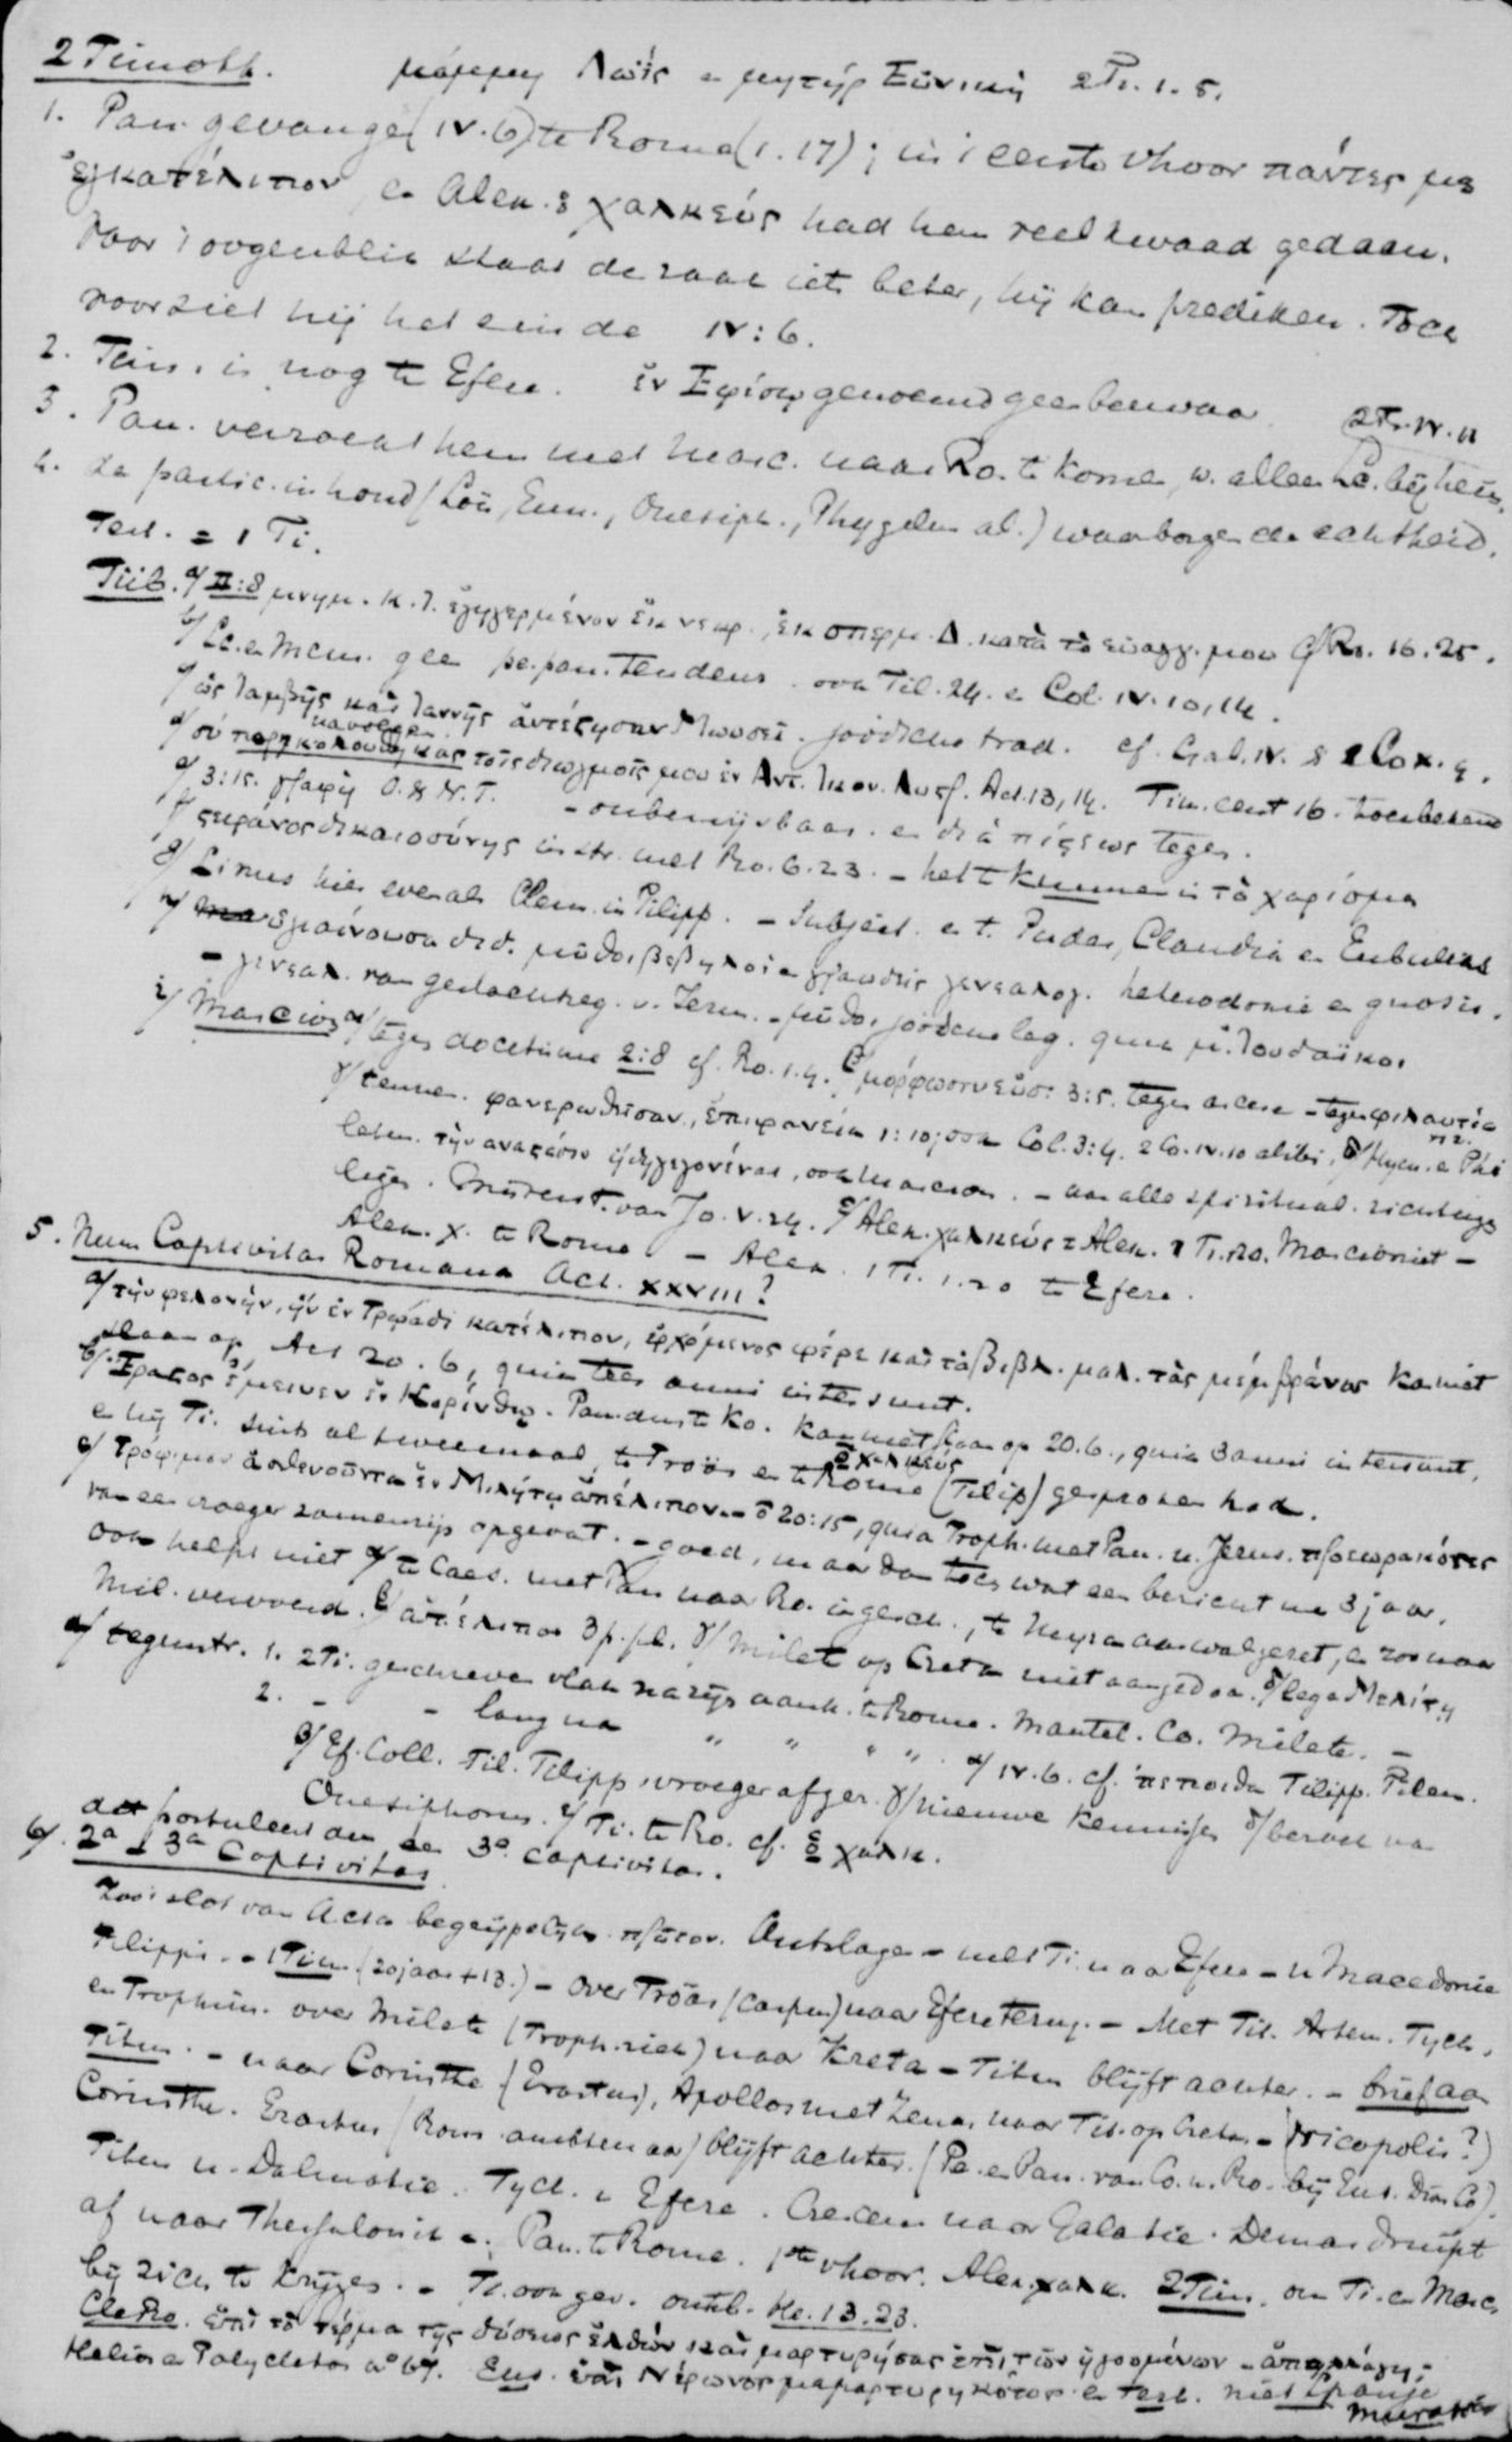 2 Timoth. μάμμη Λωΐς e μητήρ Εὐνική 2Ti. 1. 5.
1. Pau. gevange (IV.6) te Rome (1.17); in 't eerste vhoor πάντες με
ἐγκατέλιπον, en Alex. ὁ χαλκεύς had hem veel kwaad gedaan.
Voor 't oogenblik staat de zaak iets beter, hij kan prediken. Toch
voorziet hij het einde IV:6.
2. Tim. is nog te Efese. ἐν Ἐφέσῳ genoemd geen bezwaar
3. Pau. verzoekt hem met Marc. naar Ro. te komen, w. alleen Lc. bij hem. 2Ti. IV. 11
4. de partic. inhoud (Loïs, Eun., Onesiph., Phygelus al.) waarborgen de echtheid.
Test. = 1 Ti.
Tüb. α/ II:8 μνημ. Ι. Χ. ἐγηγερμένον ἐκ νεκρ., ἐκ σπερμ. Δ. κατὰ τὸ εὐαγγ. μου cf Ro. 16. 25.
b/ Lc. en Marc. geen pe. pau. tendens. ook Fil. 24. en Col. IV. 10, 14.
c/ ὡς Ἰαμβρῆς καὶ Ἰαννῆς ἀντέστησαν Μωυσεῖ. joodsche trad. cf. Gal. IV. & 1 Co X. 4.
d/ σύ παρηκολούθηκας τοῖς διωγμοῖς μου ἐν Ἀντ. Ἰκον. Λυστ. Act. 13, 14. Tim. eerst 16. toen bekend
e/ 3:15. γραφή O. & N. T. - onbewijsbaar. en διὰ πίστεως tegen.
f/ στεφάνος δικαιοσύνης in str. met Ro. 6. 23. - het τὸ χαρίσμα
g/ Linus hier evenals Clem. in Filipp. - Subject. en t. Pudens, Claudia en Eubulus
h/ ὑγιαίνουσα διδ. μῦθοι βεβηλοί e γραώδεις γενεαλογ. heterodoxie en gnosis.
- γενεαλ. van geslachtreg. v. Jerus. - μῦθοι joodsche leg. quia μ. Ἰουδαϊκοι
i/ Marcion α/ tegen docetisme 2:8 cf. Ro. 1. 4. β/ μορφωσιν εὐσ. 3:5. tegen ascese - tegen φιλαυτία
γ/ φανερωθεῖσαν, ἐπιφανεία 1:10; ook Col. 3:4. 2 Co. IV. 10 alibi, δ/ Hym. e Phi
leten. τὴν ἀναστάσιν ἤδη γεγονέναι, ook Marcion. - aan alle spiritual. richtinge
eigen. Misverst. van Jo. V. 24. ε/ Alex. χαλκεύς = Alex. 1 Ti. 1.20. Marcioniet -
Alex. χ. te Rome - Alex. 1 Ti. 1. 20 te Efese.
5. Num Captivitas Romana Act. XXVIII?
a/ τὴν φελονήν, ἣν ἐν Τρῳάδι κατέλιπον, ἐρχόμενος φέρε καὶ τὰ βιβλ. μαλ. τὰς μέμβράνας kan niet
slaan op Act 20. 6, quia tres anni intersunt.
b/. Ἔραστος ἔμεινεν ἐν Κορίνθῳ. Paulus te Ko. kan niet slaan op 20. 6., quia 3 anni intersunt,
en hij Ti. sinds al tweemaal, te Troas en te Rome (Filip) gesproken had.
c/ Τρόφιμον ἀσθενοῦντα ἐν Μιλήτῳ ἀπέλιπον. - 20:15, quia Troph. met Pau. n. Jerus. προεωρακότες
van een vroeger zamenzijn opgevat. - goed, maar dan toch wat een bericht na 3 jaar.
ook helpt niet α/ te Caes. met Pau naar Ro. ingesch., te Myra aan wal gezet, en zoo naar
Mil. vervoerd. β/ ἀπέλιπον 3 p. pl. γ/ Milete op Creta niet aangedaan. δ/ lege Μελίτη
d/ tegenstr. 1. 2Ti. geschreven vlak na zijn aank. te Rome. Mantel. Co. Milete. -
2. - - lang na " " " " α/ IV. 6. cf. πεποιθα Filipp. Filem.
β/ Ef. Coll. Fil. Filipp. vroeger afgez. γ/ nieuwe kennissen δ/ bezoek van
Onesiphorus. ε/ Ti. te Ro. cf. ὁ χαλκ.
dit postuleert dan een 3e captivitas.
6/. 2a - 3a Captivitas
Zoo 't slot van Acta begrijpelijk. πρῶτον. Ontslagen - met Ti. naar Efese - n Macedonie
Filippi. - 1Tim. (20 jaar + 13.) - Over Tróas (Carpus) naar Efese terug. - Met Tit. Artem. Tych.
en Trophim. over Milete (Troph. ziek) naar Kreta - Titus blijft achter. - brief aan
Titus. - naar Corinthe (Erastus), Apollos met Zenas naar Tit. op Creta - (Nicopolis?)
Corinthe. Erastus (Rom. ambtenaar) blijft achter. (Pe. en Pau. van Co. n. Ro. bij Eus. Dion Co).
Titus n. Dalmatie. Tych. n Efese. Crescens naar Galatie. Demas druipt
af naar Thessalonik. Pau. te Rome. 1ste vhoor. Alex. χαλκ. 2Tim. om Ti. en Marc.
bij zich te krijgen. - Ti. ook gev. ontsl. He. 13. 23.
Cle Ro. ἐπὶ τὸ τέρμα τῆς δύσεως ἐλθών καὶ μαρτυρήσας ἐπὶ τῶν ἡγουμένων - ἀπηλλάγη -
Helius e Polycletos aº 67. Eus. ὑπὸ Νέρωνος en Test. niet Spanje
Murat